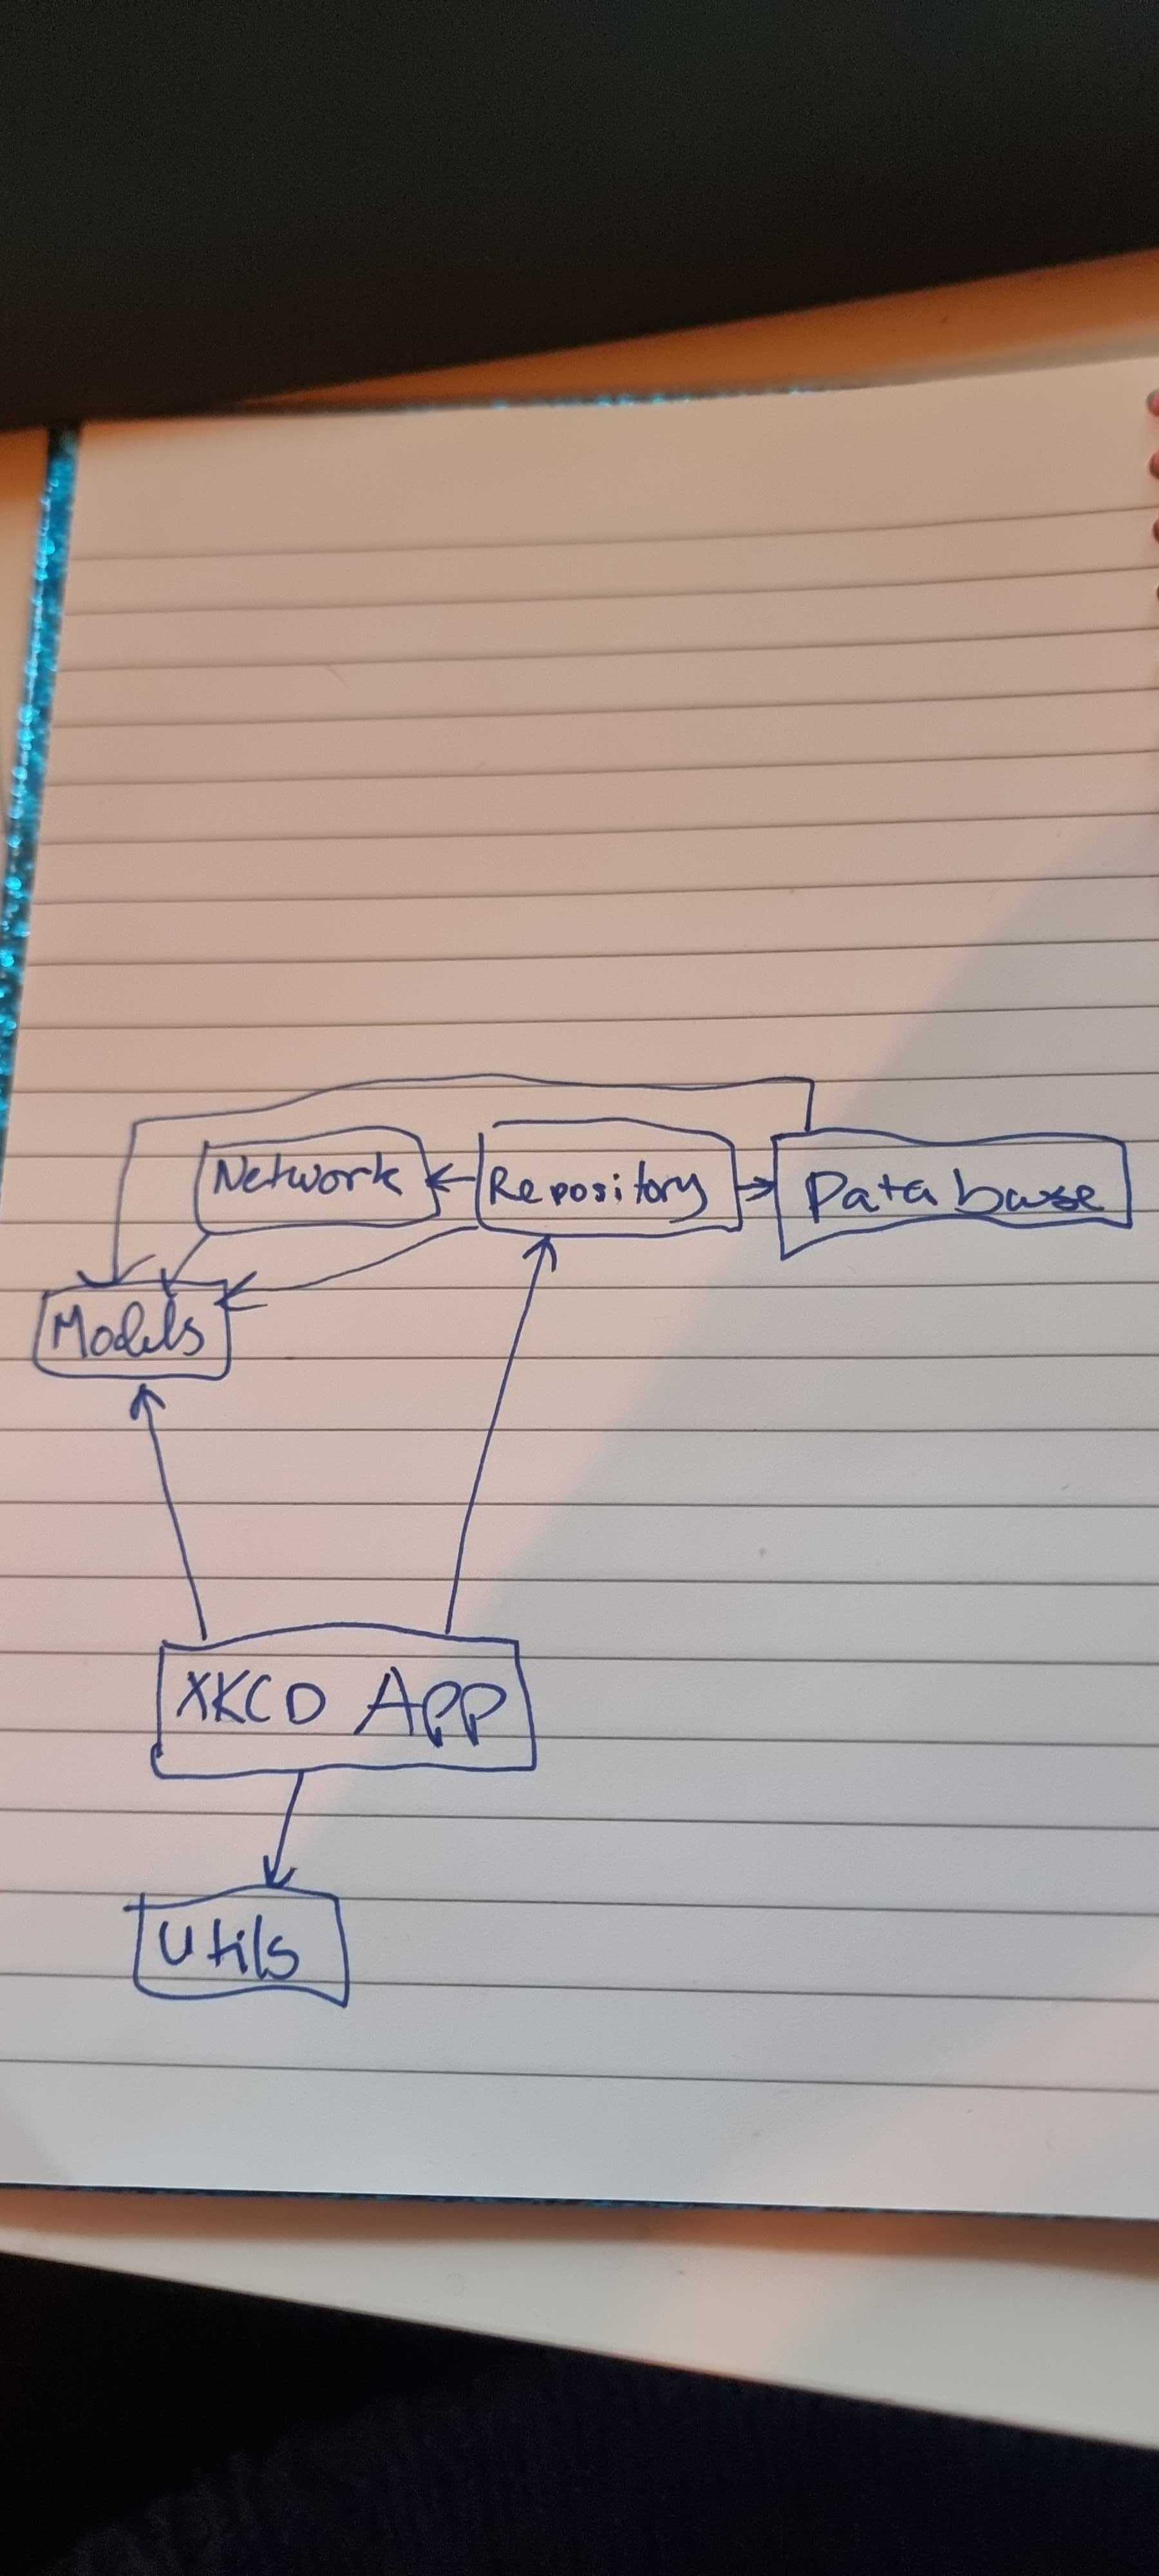 Network
Repository
Database
Models
XKCD App
Utils